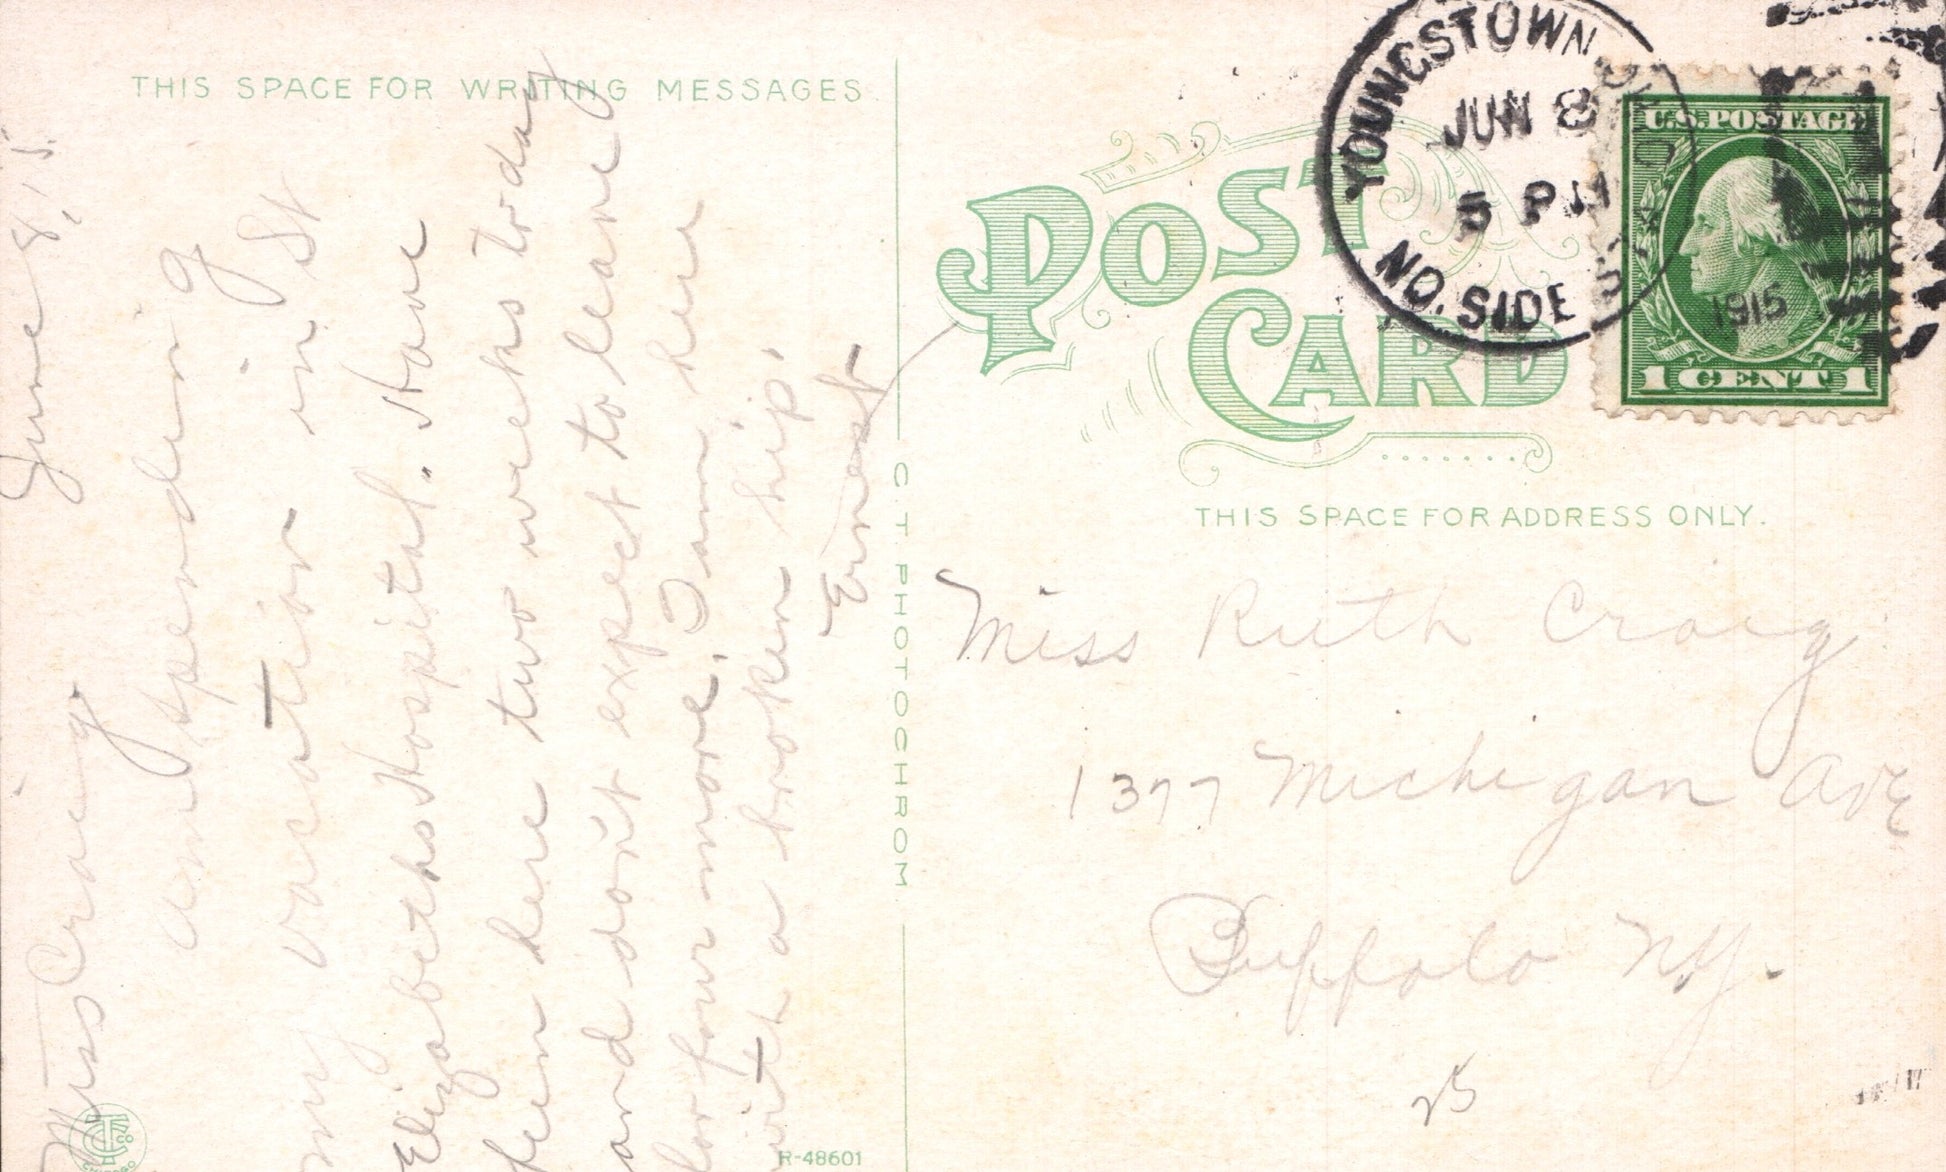 THIS SPACE FOR WRITING MESSAGES
June 8, 15.
Miss Craig
am spending
my vacation in St
Elizabeths Hospital. Have
been here two weeks today
and don't expect to leave
for four more. I am here
with a broken hip.
Ernest
C. T. PHOTOCHROM
R-48601
CT CO
CHICAGO
POST CARD
YOUNGSTOWN, OHIO
JUN 8
5 PM
1915
NO. SIDE
U.S. POSTAGE
1 CENT 1
THIS SPACE FOR ADDRESS ONLY.
Miss Ruth Craig
1377 Michigan Ave
Buffalo N.Y.
25